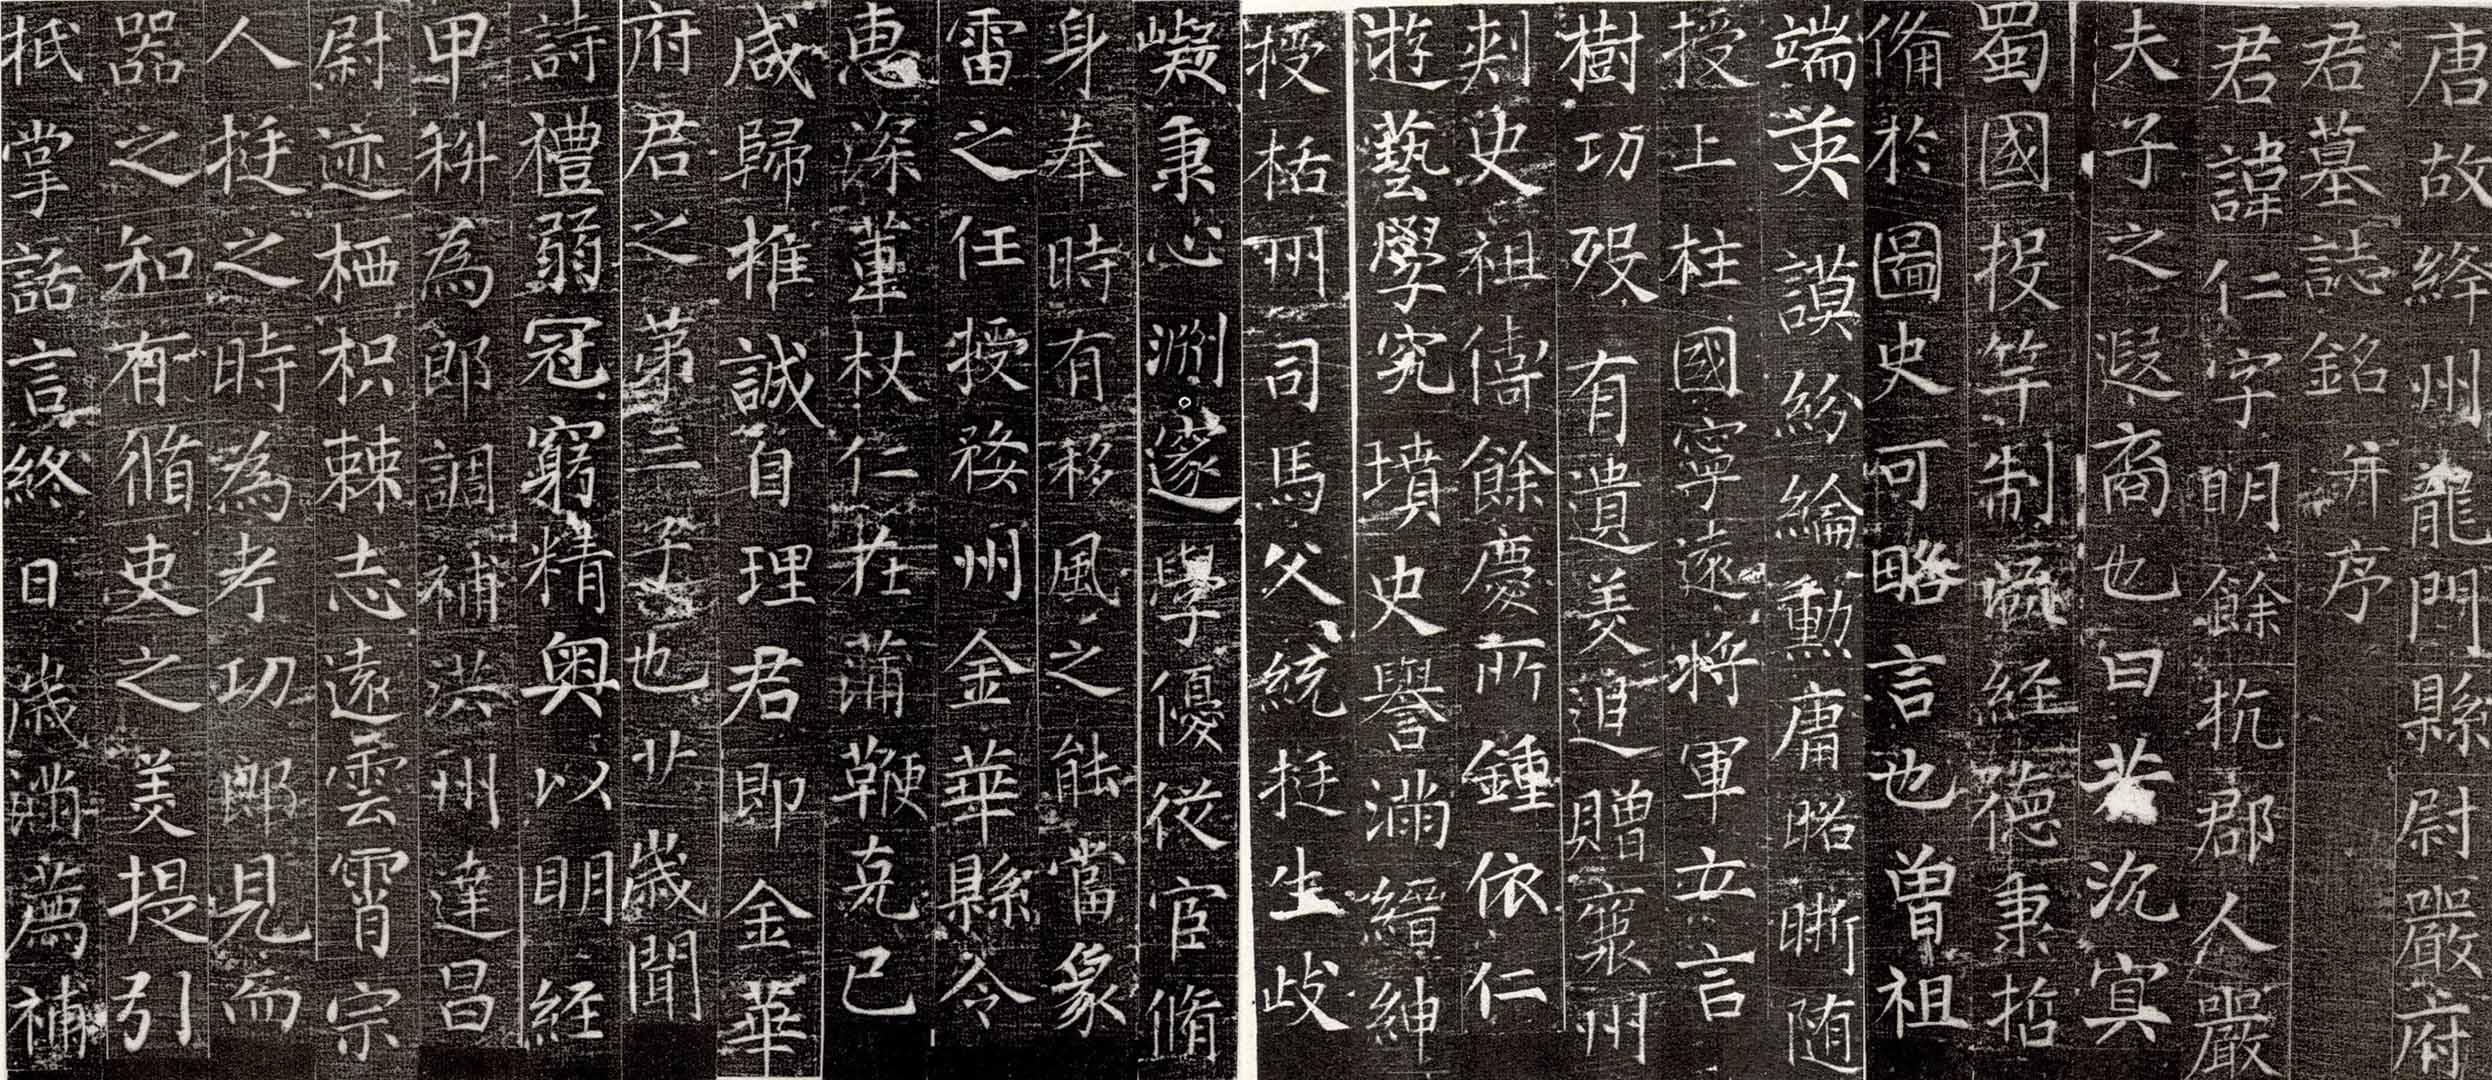 唐故絳州龍門縣尉嚴府
君墓誌銘并序
君諱仁字明餘杭郡人嚴
夫子之遐裔也曰若沉冥
蜀國投竿制
經德秉哲
備於圖史可略言也曾祖
端英謨紛綸勳庸昭晰随
授上柱國寧遠將軍立言
樹功歿有遺美追贈襄州
刺史祖儔餘慶所鍾依仁
遊藝學究墳史譽滿縉紳
授栝州司馬父統挺生歧
嶷秉心淵邃學優從宦脩
身奉時有移風之能當象
雷之任授婺州金華縣令
惠深董杖仁在蒲鞭克己
咸歸推誠自理君即金華
府君之第三子也廿歲聞
詩禮弱冠窮精奥以明經
甲科為郎調補洪州達昌
尉迹栖枳棘志遠雲霄宗
人挺之時為考功郎見而
器之和有脩吏之美提引
抵掌話言終日歲滿薦補